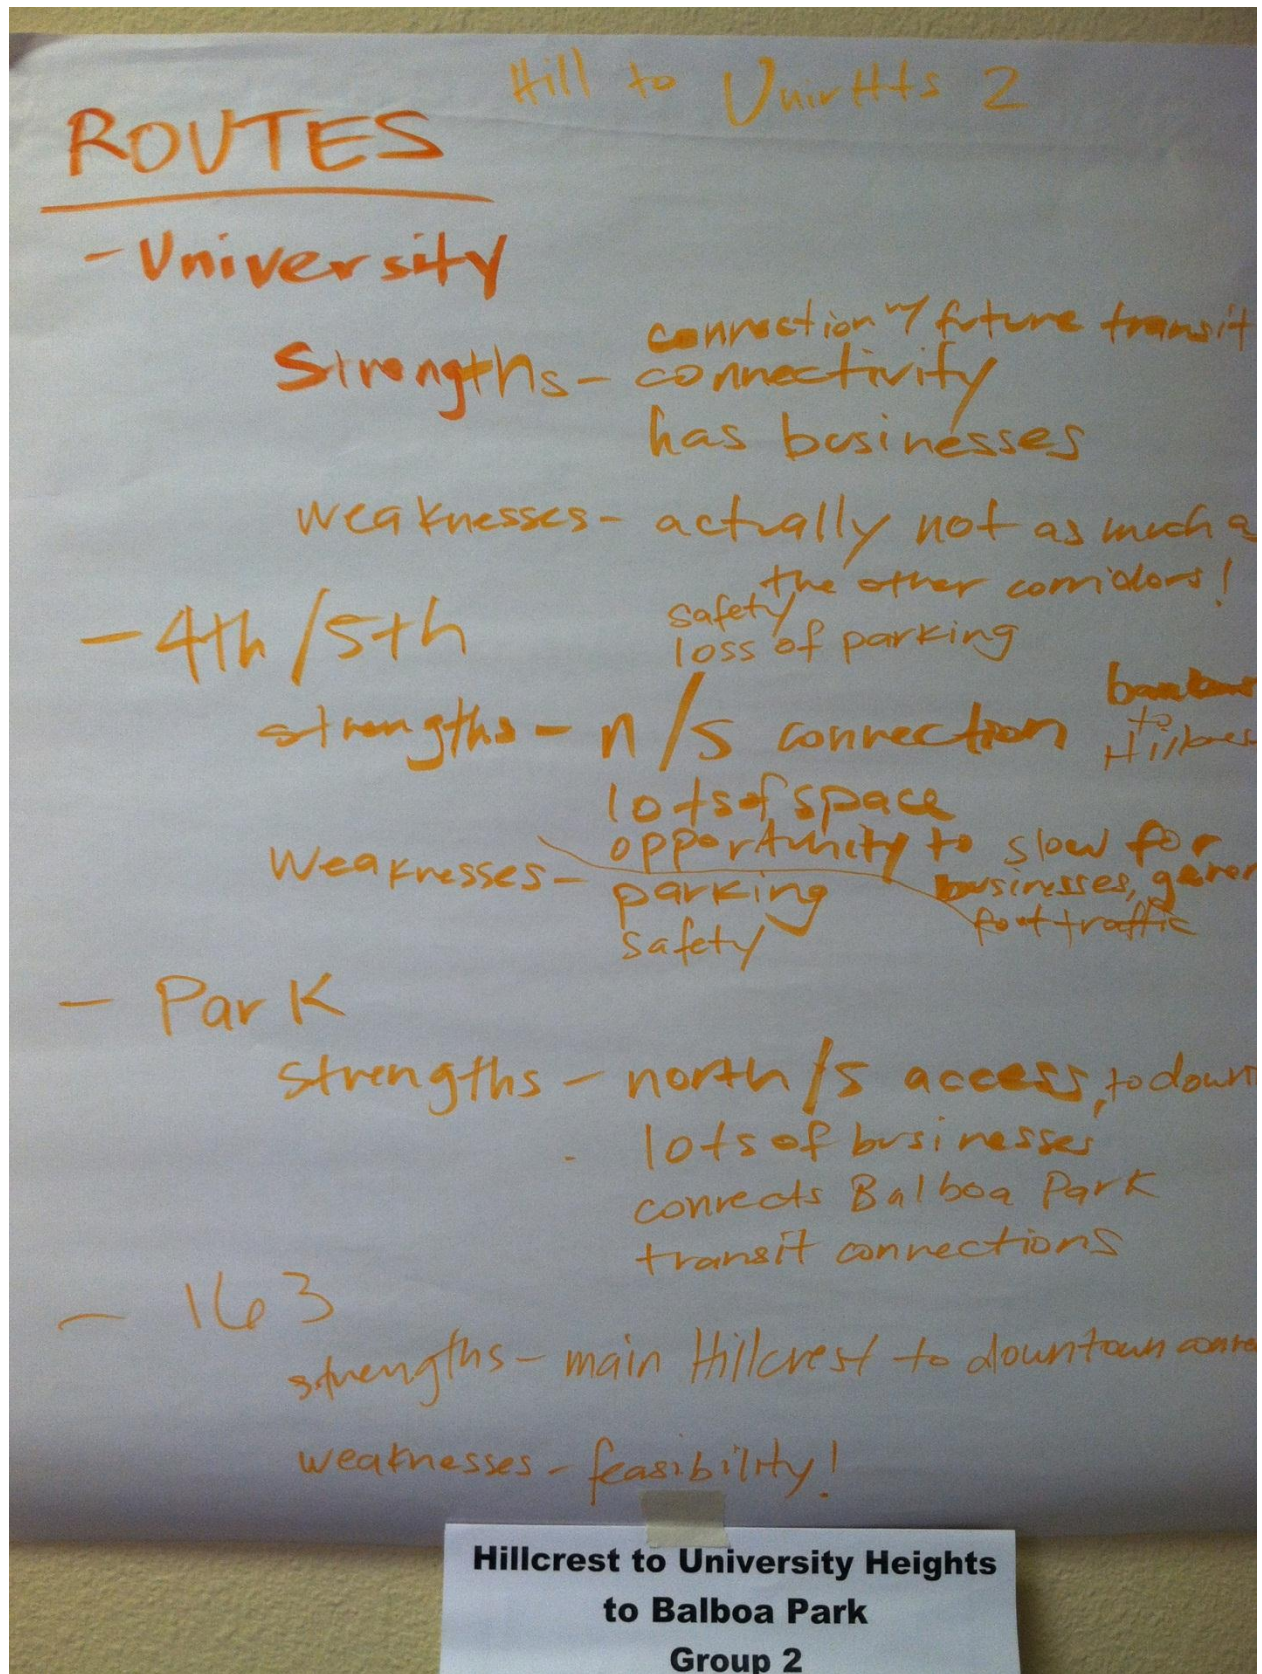 Hill to UnivHts 2
ROUTES
- University
connection w/ future transit
Strengths - connectivity
has businesses
weaknesses - actually not as much a
the other corridors!
safety
loss of parking
- 4th / 5th
strengths - n/s connection
to
lots of space
opportunity to slow for
businesses, gener
foot traffic
Weaknesses - parking
safety
- Park
strengths - north/s access, to down
lots of businesses
connects Balboa Park
transit connections
- 163
strengths - main Hillcrest to downtown conne
weaknesses - feasibility!
Hillcrest to University Heights
to Balboa Park
Group 2